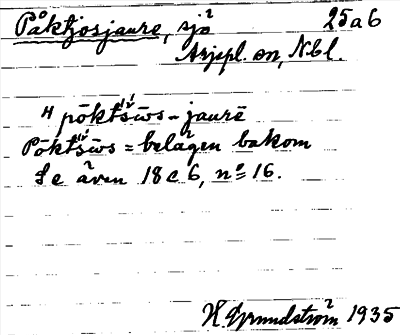 Påktjosjaure, sjö 25a6
Arjepl. sn, Nbl.
H pōktśω̄s-jaurē
Pōktśω̄s = belägen bakom
Se även 18c6, nº 16.
H. Grundström 1935